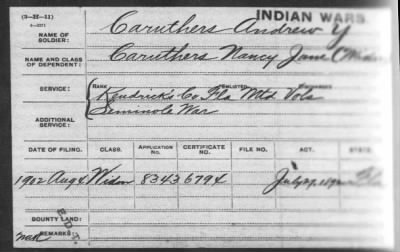 INDIAN WARS
(3-H-11)
NAME OF SOLDIER: Caruthers Andrew Y
NAME AND CLASS OF DEPENDENT: Caruthers Nancy Jane (Widow
SERVICE: RANK ENLISTED DISCHARGED
Kendrick's Co Fla Mtd Vols
ADDITIONAL SERVICE: Seminole War
DATE OF FILING. CLASS. APPLICATION NO. CERTIFICATE NO. FILE NO. ACT. STATE.
1902 Aug 4 Widow 8343 6794 July 27, 1892 Fla
BOUNTY LAND:
REMARKS: